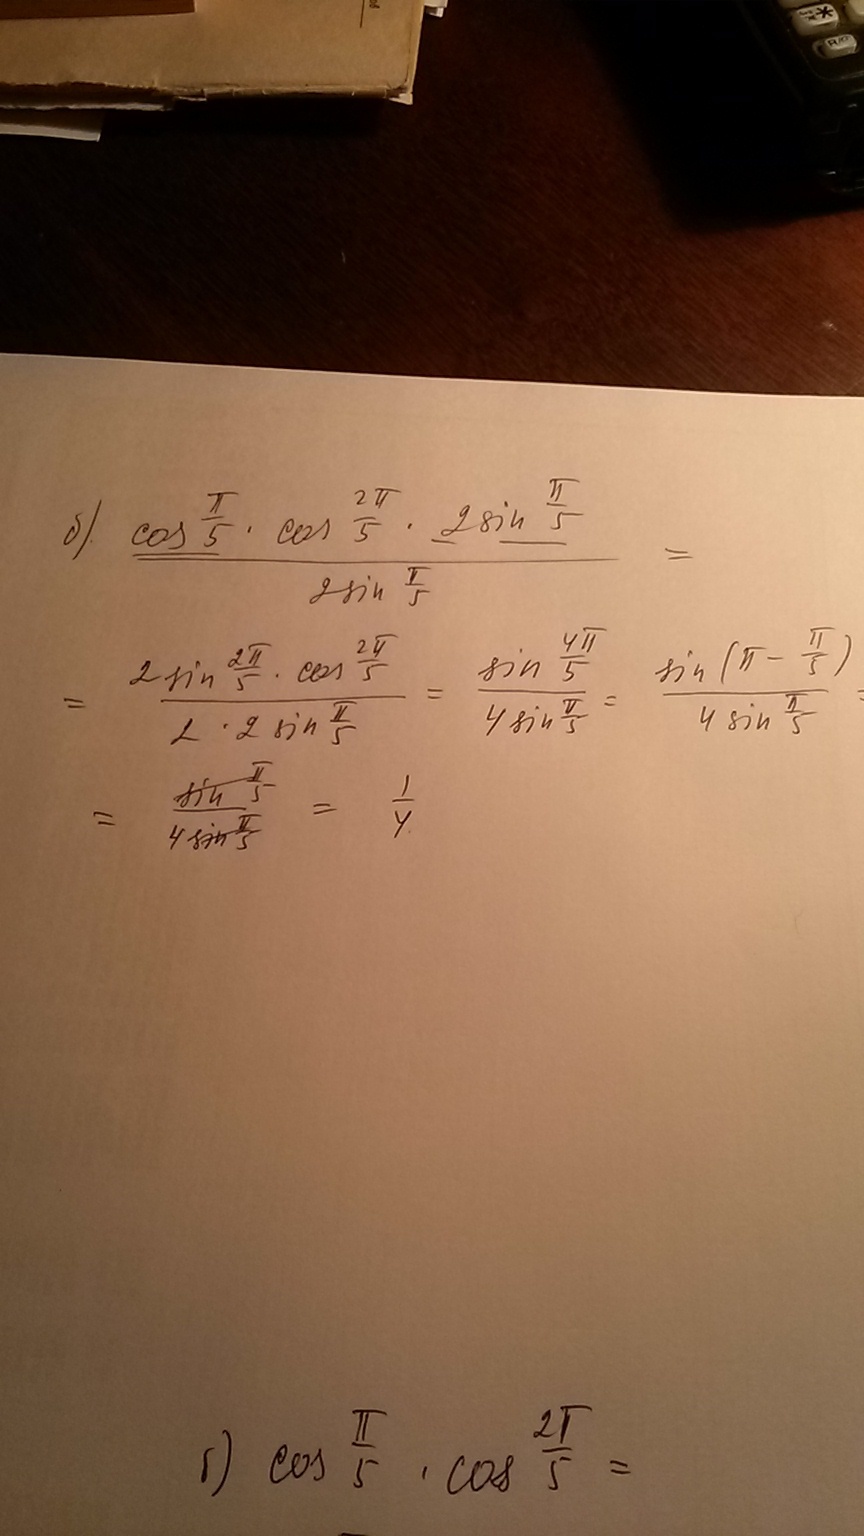 б). cos π/5 · cos 2π/5 · 2 sin π/5 / 2 sin π/5 =
= 2 sin 2π/5 · cos 2π/5 / 2 · 2 sin π/5 = sin 4π/5 / 4 sin π/5 = sin (π - π/5) / 4 sin π/5 =
= sin π/5 / 4 sin π/5 = 1/4.
б) cos π/5 · cos 2π/5 =